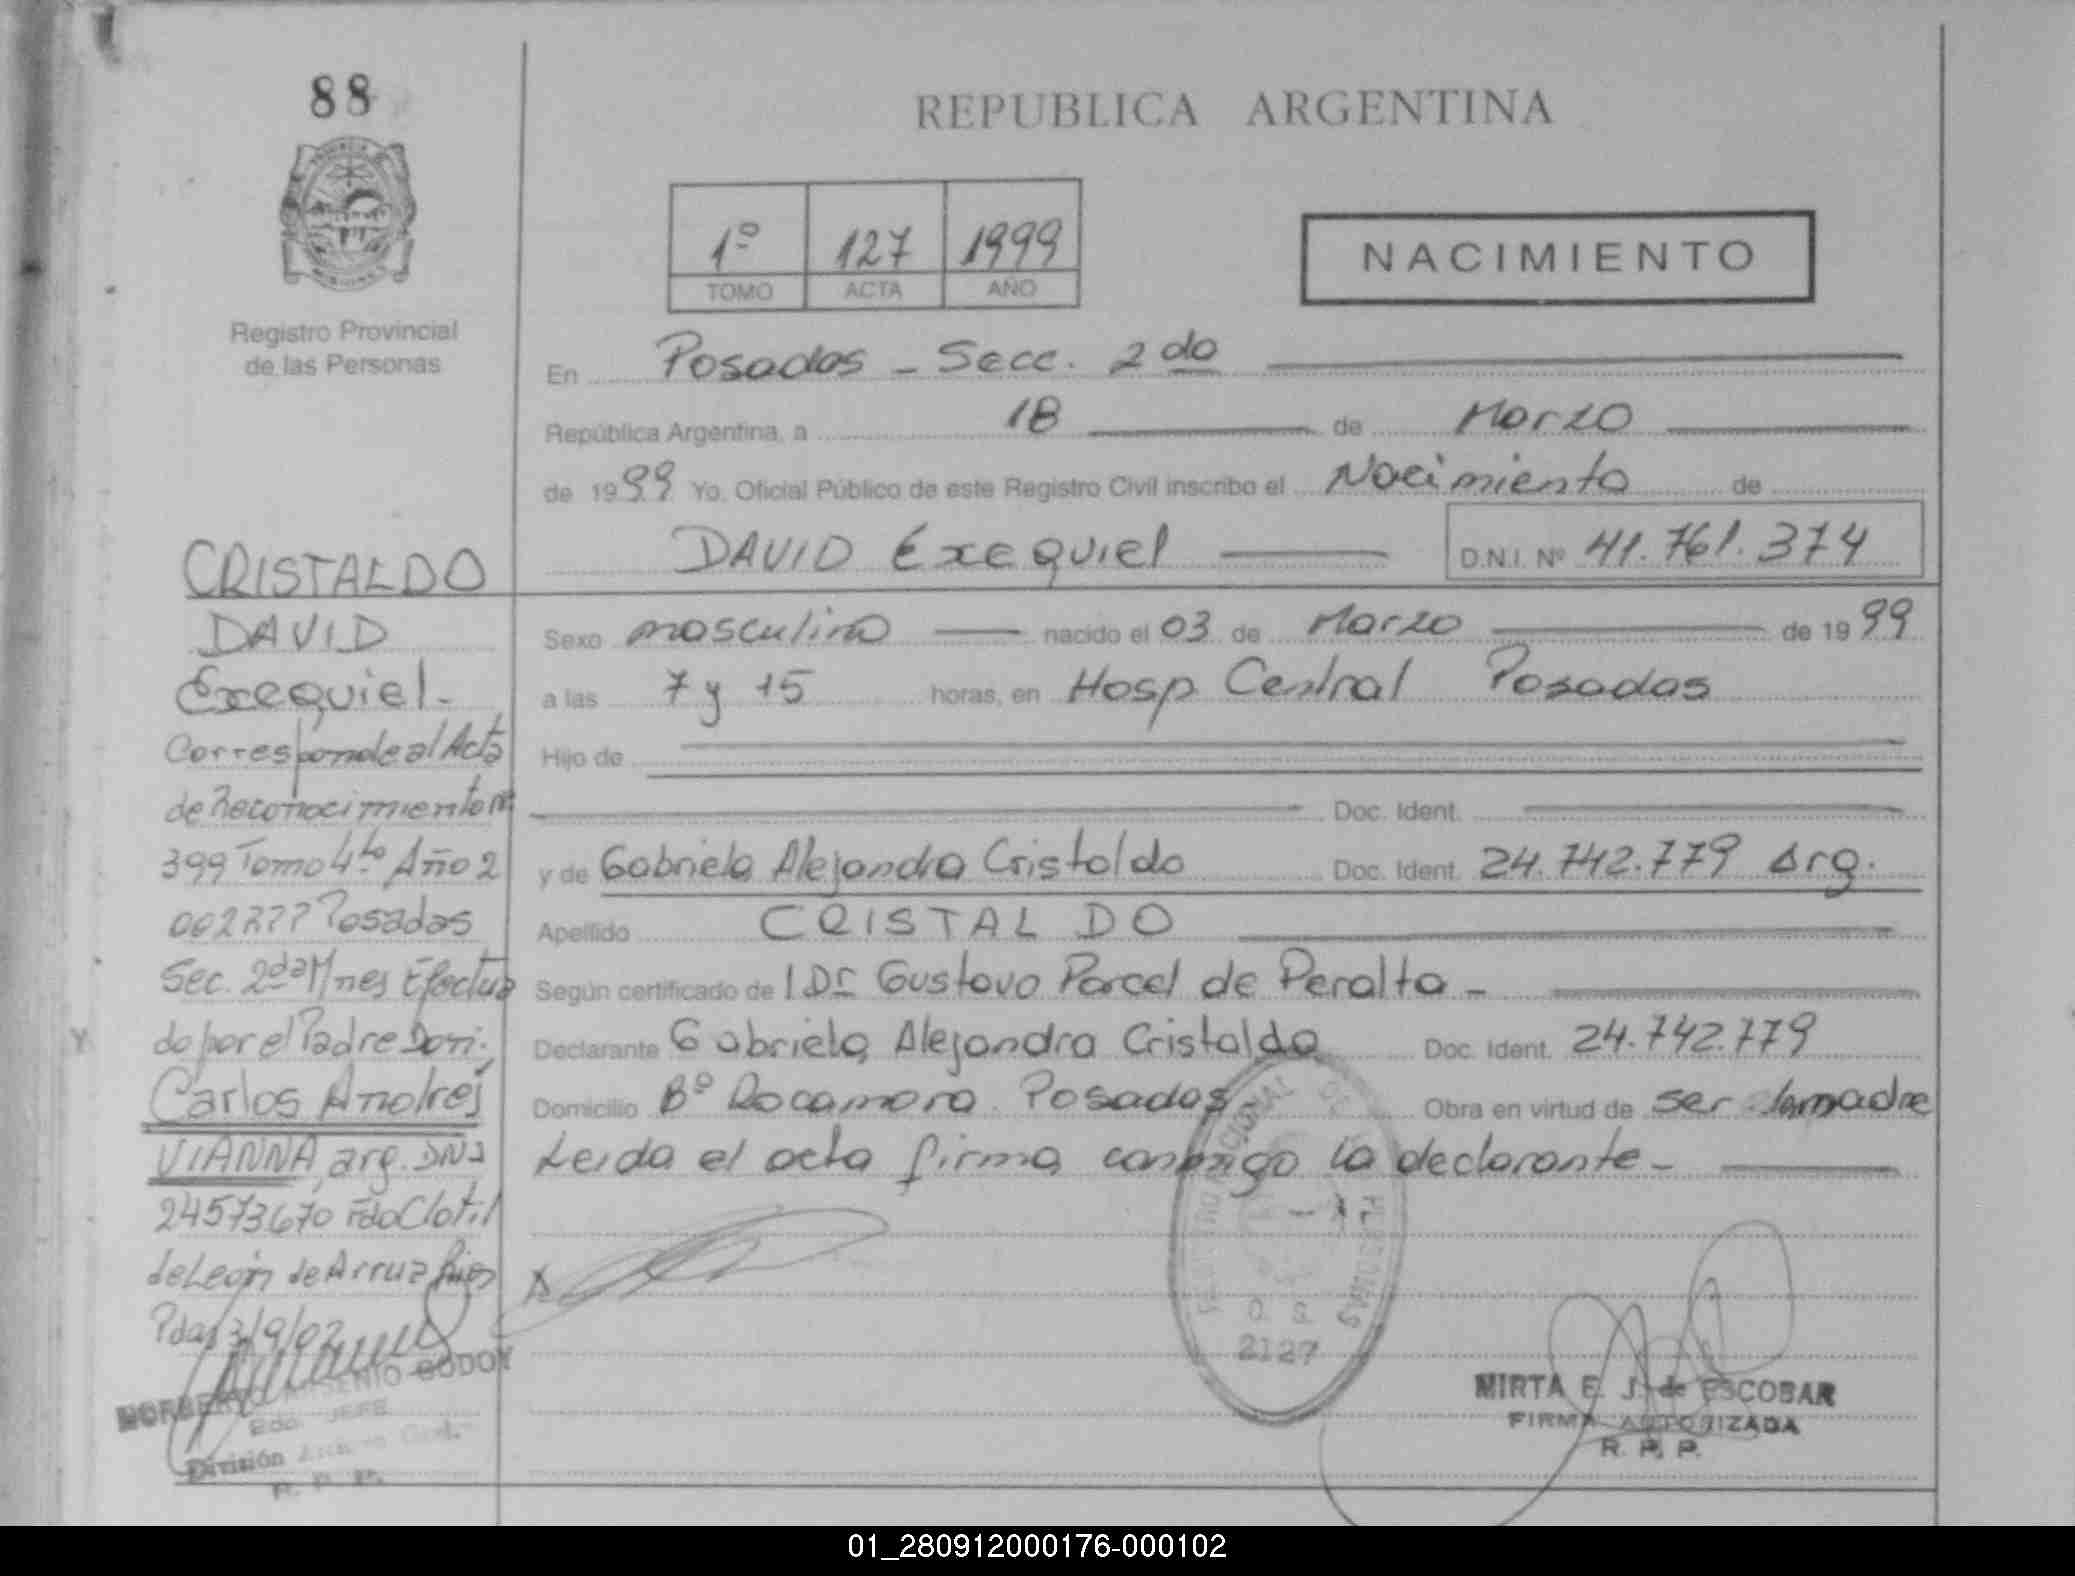 88
Registro Provincial
de las Personas
CRISTALDO
DAVID
Exequiel-
Corresponde al Acta
de Reconocimiento nº
399 Tomo 4to Año 2
002 RPP Posadas
Sec. 2da Mnes Efectua
do por el Padre Don:
Carlos Andrés
VIANNA, arg. DNI
24573670 Fdo Clotil
de León de Arruz
Pdas 3/9/02
NORBERTO GODOY
Edo. JEFE
División
R. P. P.
REPUBLICA ARGENTINA
1º 127 1999
TOMO ACTA AÑO
NACIMIENTO
En Posadas - Secc. 2da
República Argentina, a 18 de Marzo
de 1999 Yo, Oficial Público de este Registro Civil inscribo el Nacimiento de
DAVID Exequiel D.N.I. Nº 41.761.374
Sexo masculino nacido el 03 de Marzo de 1999
a las 7 y 15 horas, en Hosp Central Posadas
Hijo de
Doc. Ident.
y de Gabriela Alejandra Cristaldo Doc. Ident. 24.742.779 Arg.
Apellido CRISTALDO
Según certificado de l Dr Gustavo Parcel de Peralta -
Declarante Gabriela Alejandra Cristaldo Doc. Ident. 24.742.779
Domicilio Bº Rocamora Posadas Obra en virtud de ser la madre
Leida el acta firma conmigo la declarante-
O. S.
2127
MIRTA E. J. de ESCOBAR
FIRMA AUTORIZADA
R. P. P.
01_280912000176-000102